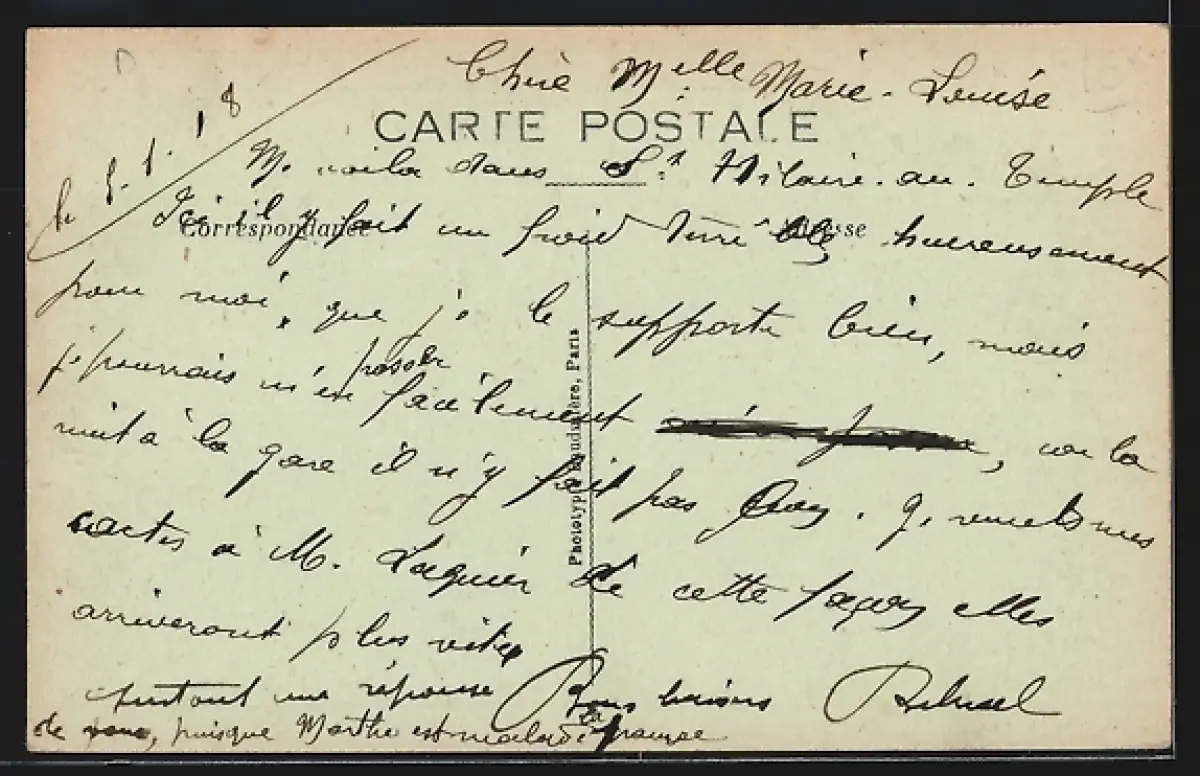 Chère Melle Marie-Louise
CARTE POSTALE
le 5.1.18
Me voila dans St Hilaire-au-Temple
Correspondance
Ici il y fait un froid terrible heureusement
pour moi, que je le supporte bien, mais
je pourrais m'en passer facilement, car la
nuit à la gare il n'y fait pas
cartes à M. Laquier de cette façon elles
arriveront plus vite
surtout une réponse Bons baisers
de vous, puisque Marthe est malade
Phototypie Baudinière, Paris